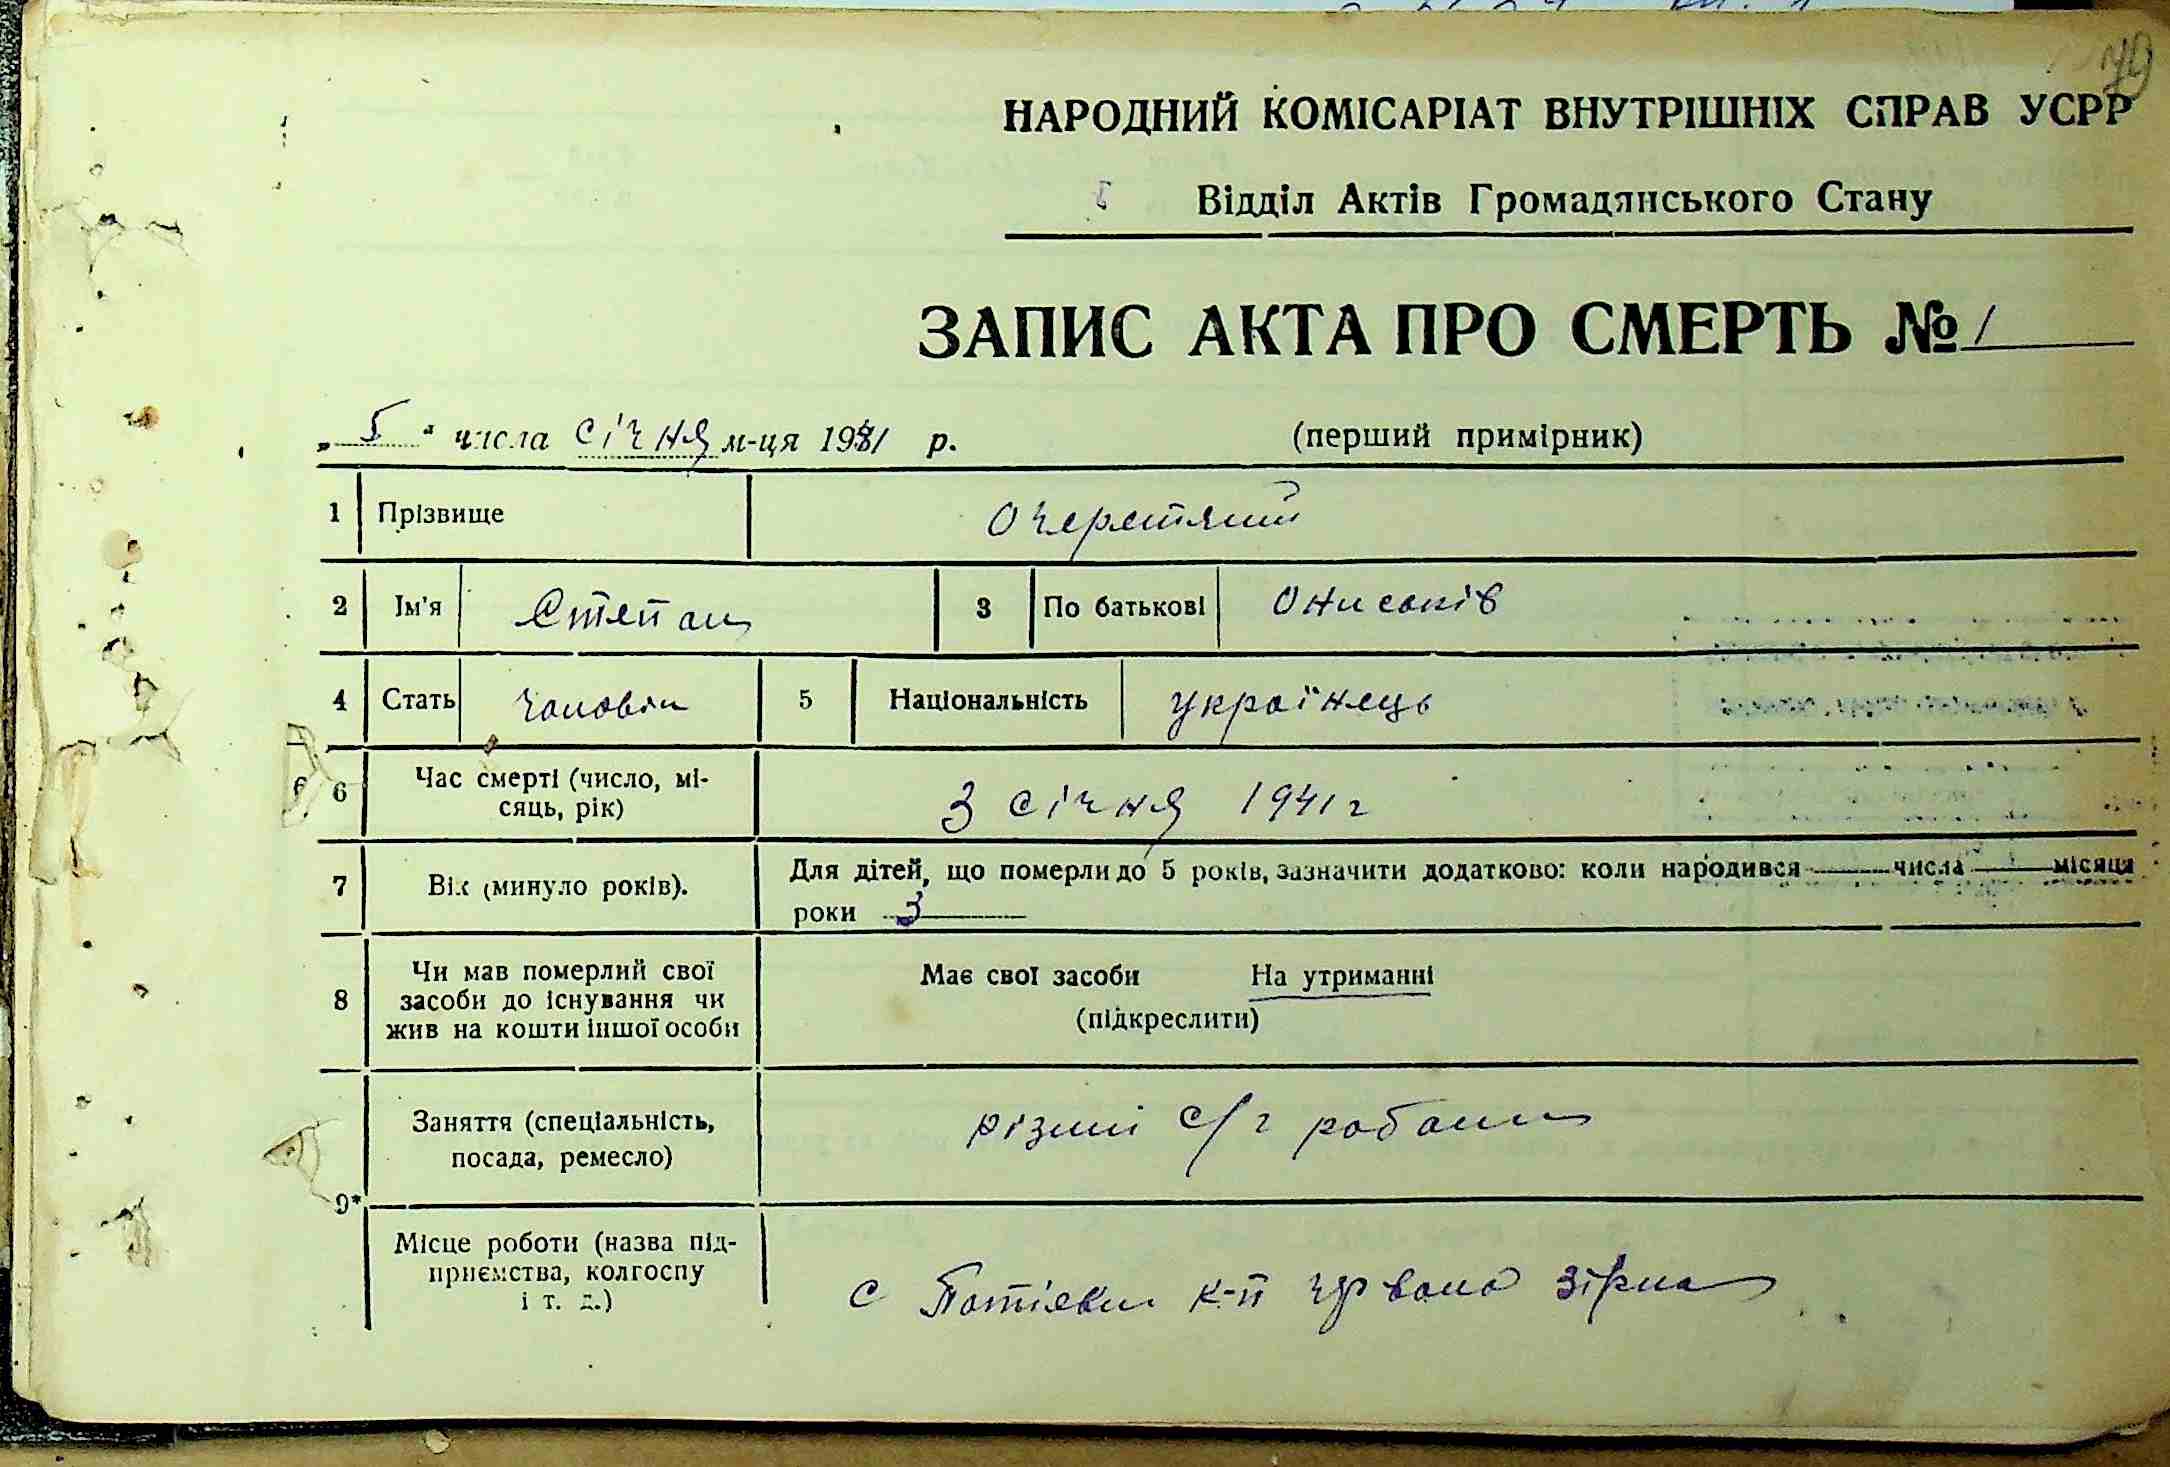 НАРОДНИЙ КОМІСАРІАТ ВНУТРІШНІХ СПРАВ УСРР
Відділ Актів Громадянського Стану
ЗАПИС АКТА ПРО СМЕРТЬ № 1
„5" числа січня м-ця 1941 р. (перший примірник)
1 Прізвище Очеретяний
2 Ім'я Степан 3 По батькові
4 Стать чоловік 5 Національність українець
6 Час смерті (число, мі-
сяць, рік) 3 січня 1941 г
7 Вік (минуло років). Для дітей, що померли до 5 років, зазначити додатково: коли народився числа місяця
роки 3
8 Чи мав померлий свої
засоби до існування чи
жив на кошти іншої особи
Має свої засоби На утриманні
(підкреслити)
9* Заняття (спеціальність,
посада, ремесло) різни с/г робот
Місце роботи (назва під-
приємства, колгоспу
і т. д.)
с Потіевки к-п червона зірка